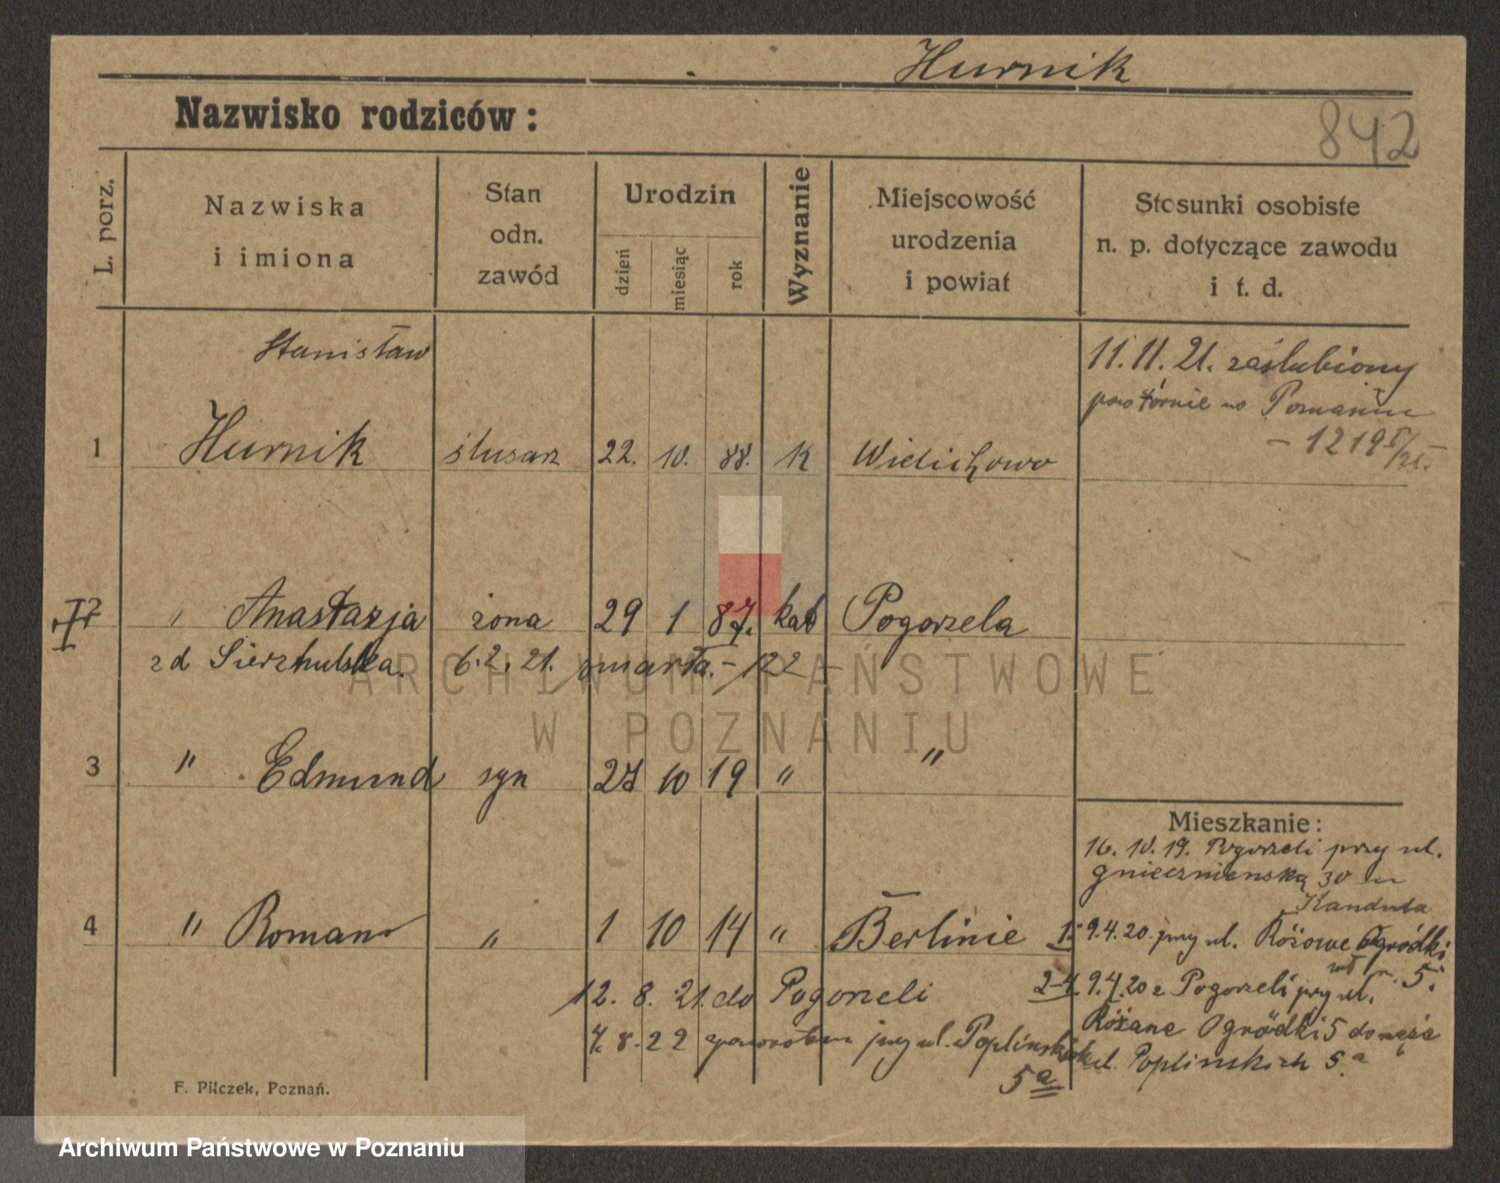 Hurnik
Nazwisko rodziców:
842
L. porz.
Nazwiska
i imiona
Stan
odn.
zawód
Urodzin
dzień
miesiąc
rok
Wyznanie
Miejscowość
urodzenia
i powiat
Stosunki osobiste
n. p. dotyczące zawodu
i t. d.
Stanisław
11.11.21. zaślubiony
powtórnie w Poznaniu
1 Hurnik ślusarz 22. 10. 88. K Wielichowo
– 1219
2 " Anastazja żona 29 1 87. kat Pogorzela
zd 6.2.21. zmarła. – 122 –
ARCHIWUM PAŃSTWOWE
W POZNANIU
3 " Edmund syn 27 10 19 " "
Mieszkanie:
16.10.19. Pogorzeli przy ul.
gnieźnieńską 30 u
Kanduta
4 " Roman " 1 10 14 " Berlinie
1. 9.4.20. przy ul. Różowe Ogródki
5.
12. 8. 21. do Pogorzeli
2-4. 9.4.20 z Pogorzeli przy ul.
Różane Ogródki 5 do męża
4. 8. 22 zpowrotem przy ul. Poplińskich
5a
ul. Poplinskich 5.a
F. Pilczek, Poznań.
Archiwum Państwowe w Poznaniu